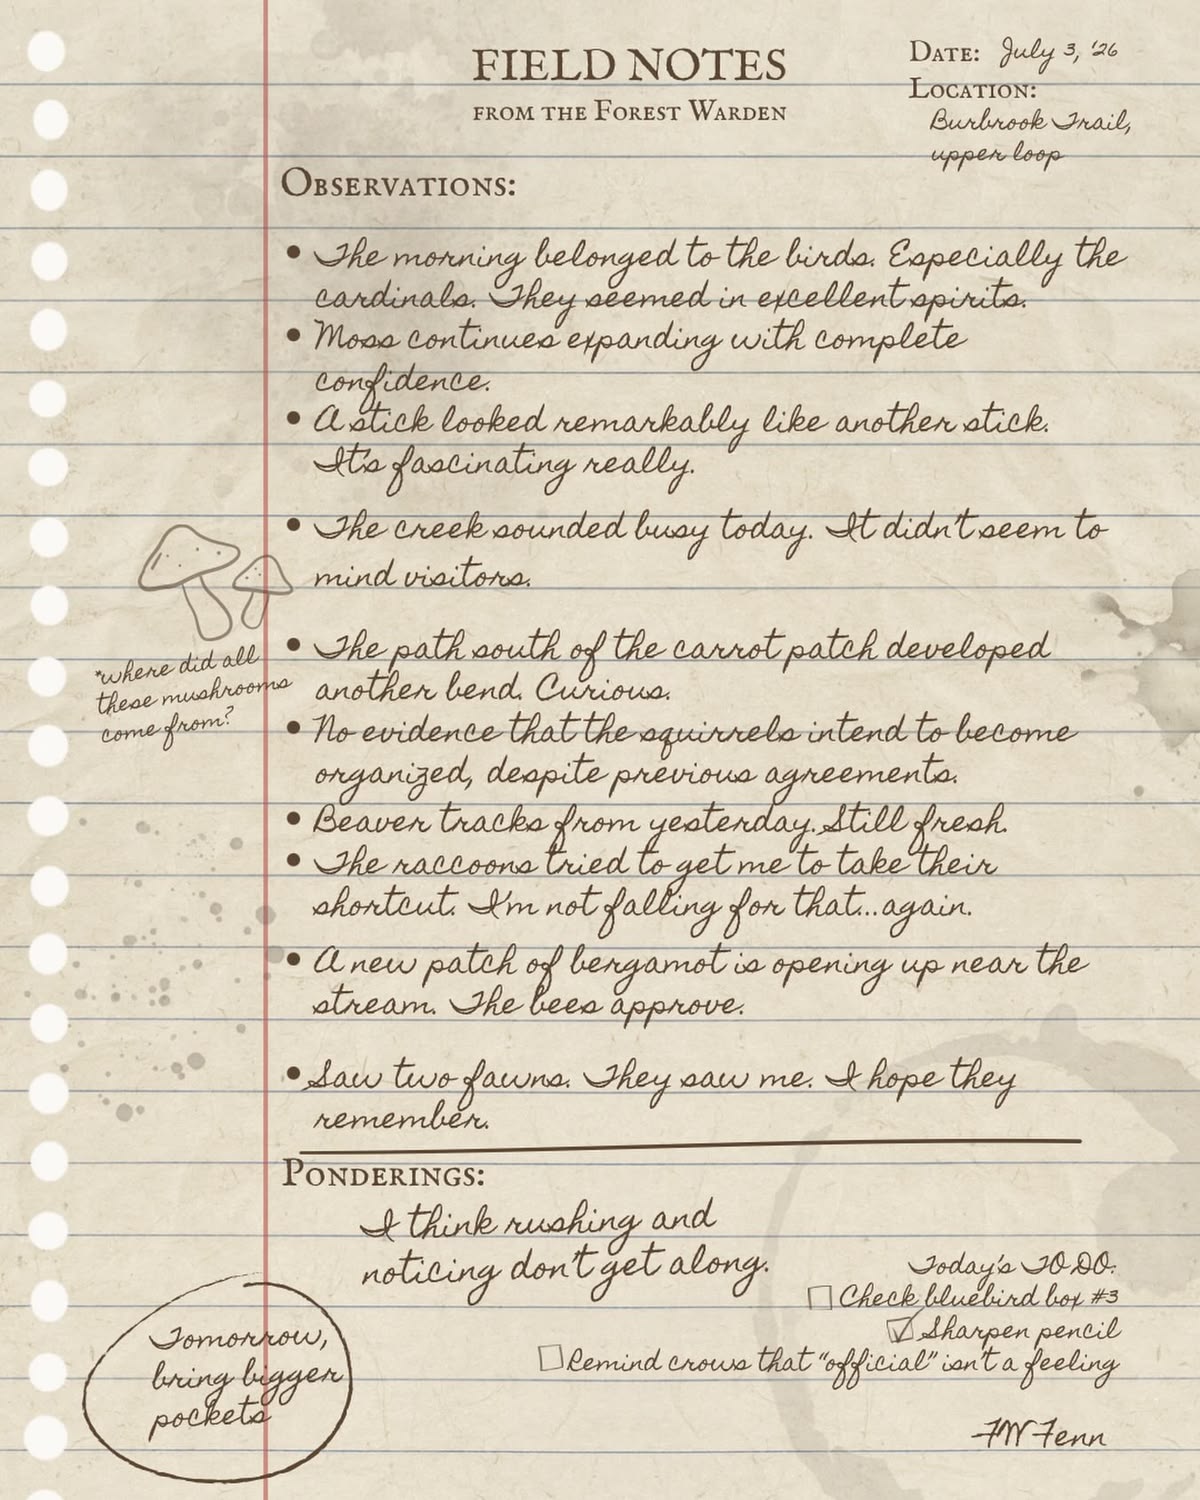 FIELD NOTES
FROM THE FOREST WARDEN
DATE: July 3, '26
LOCATION:
Burbrook Trail,
upper loop
OBSERVATIONS:
• The morning belonged to the birds. Especially the
cardinals. They seemed in excellent spirits.
• Moss continues expanding with complete
confidence.
• A stick looked remarkably like another stick.
It's fascinating really.
• The creek sounded busy today. It didn't seem to
mind visitors.
*where did all
these mushrooms
come from?
• The path south of the carrot patch developed
another bend. Curious.
• No evidence that the squirrels intend to become
organized, despite previous agreements.
• Beaver tracks from yesterday. Still fresh.
• The raccoons tried to get me to take their
shortcut. I'm not falling for that...again.
• A new patch of bergamot is opening up near the
stream. The bees approve.
• Saw two fawns. They saw me. I hope they
remember.
PONDERINGS:
I think rushing and
noticing don't get along.
Today's TO DO:
Check bluebird box #3
Sharpen pencil
Remind crows that "official" isn't a feeling
Tomorrow,
bring bigger
pockets
FW Fenn